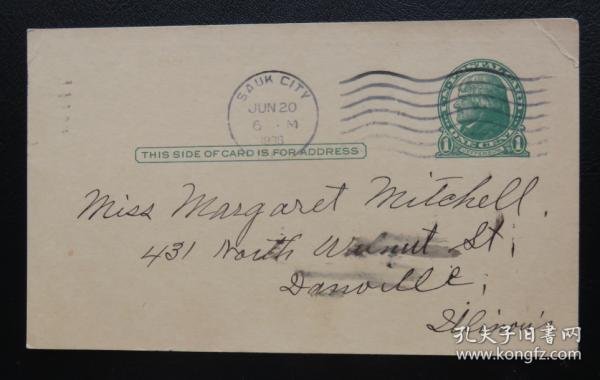 SAUK CITY
JUN 20
6 M
THIS SIDE OF CARD IS FOR ADDRESS
1 ONE CENT 1
Miss Margaret Mitchell,
431 North Walnut St;
Danville,
Illinois
孔夫子旧书网
www.kongfz.com